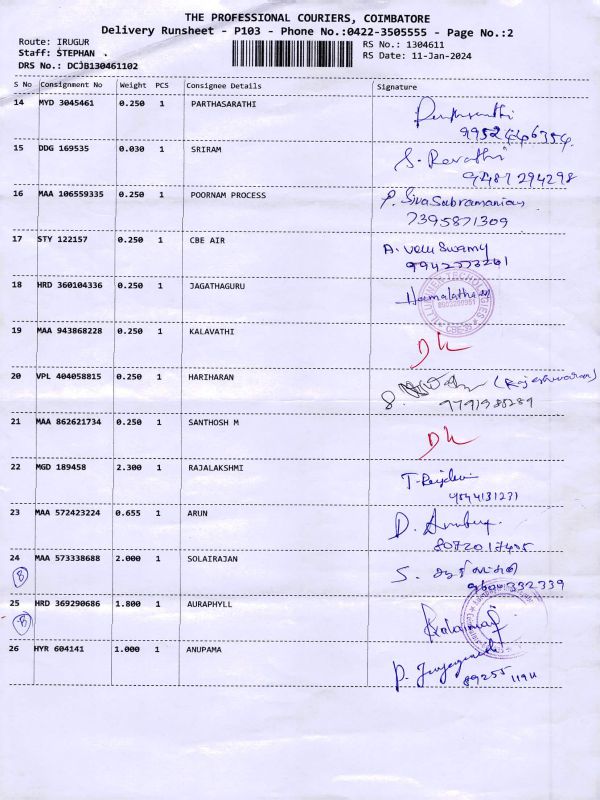 THE PROFESSIONAL COURIERS, COIMBATORE
Delivery Runsheet - P103 - Phone No.:0422-3505555 - Page No.:2
Route: IRUGUR RS No.: 1304611
Staff: STEPHAN . RS Date: 11-Jan-2024
DRS No.: DCJB130461102
S No Consignment No Weight PCS Consignee Details Signature
14 MYD 3045461 0.250 1 PARTHASARATHI
15 DDG 169535 0.030 1 SRIRAM S. Revathi
9487294298
16 MAA 106559335 0.250 1 POORNAM PROCESS P. Siva Subramanian
7395871309
17 STY 122157 0.250 1 CBE AIR A. Velu Swamy
18 HRD 360104336 0.250 1 JAGATHAGURU Hemalatha
19 MAA 943868228 0.250 1 KALAVATHI DL
20 VPL 404058815 0.250 1 HARIHARAN (Rajeshwaran)
21 MAA 862621734 0.250 1 SANTHOSH M DL
22 MGD 189458 2.300 1 RAJALAKSHMI
23 MAA 572423224 0.655 1 ARUN
8072017495
24 MAA 573338688 2.000 1 SOLAIRAJAN
8 9600332339
25 HRD 369290686 1.800 1 AURAPHYLL
8
26 HYR 604141 1.000 1 ANUPAMA